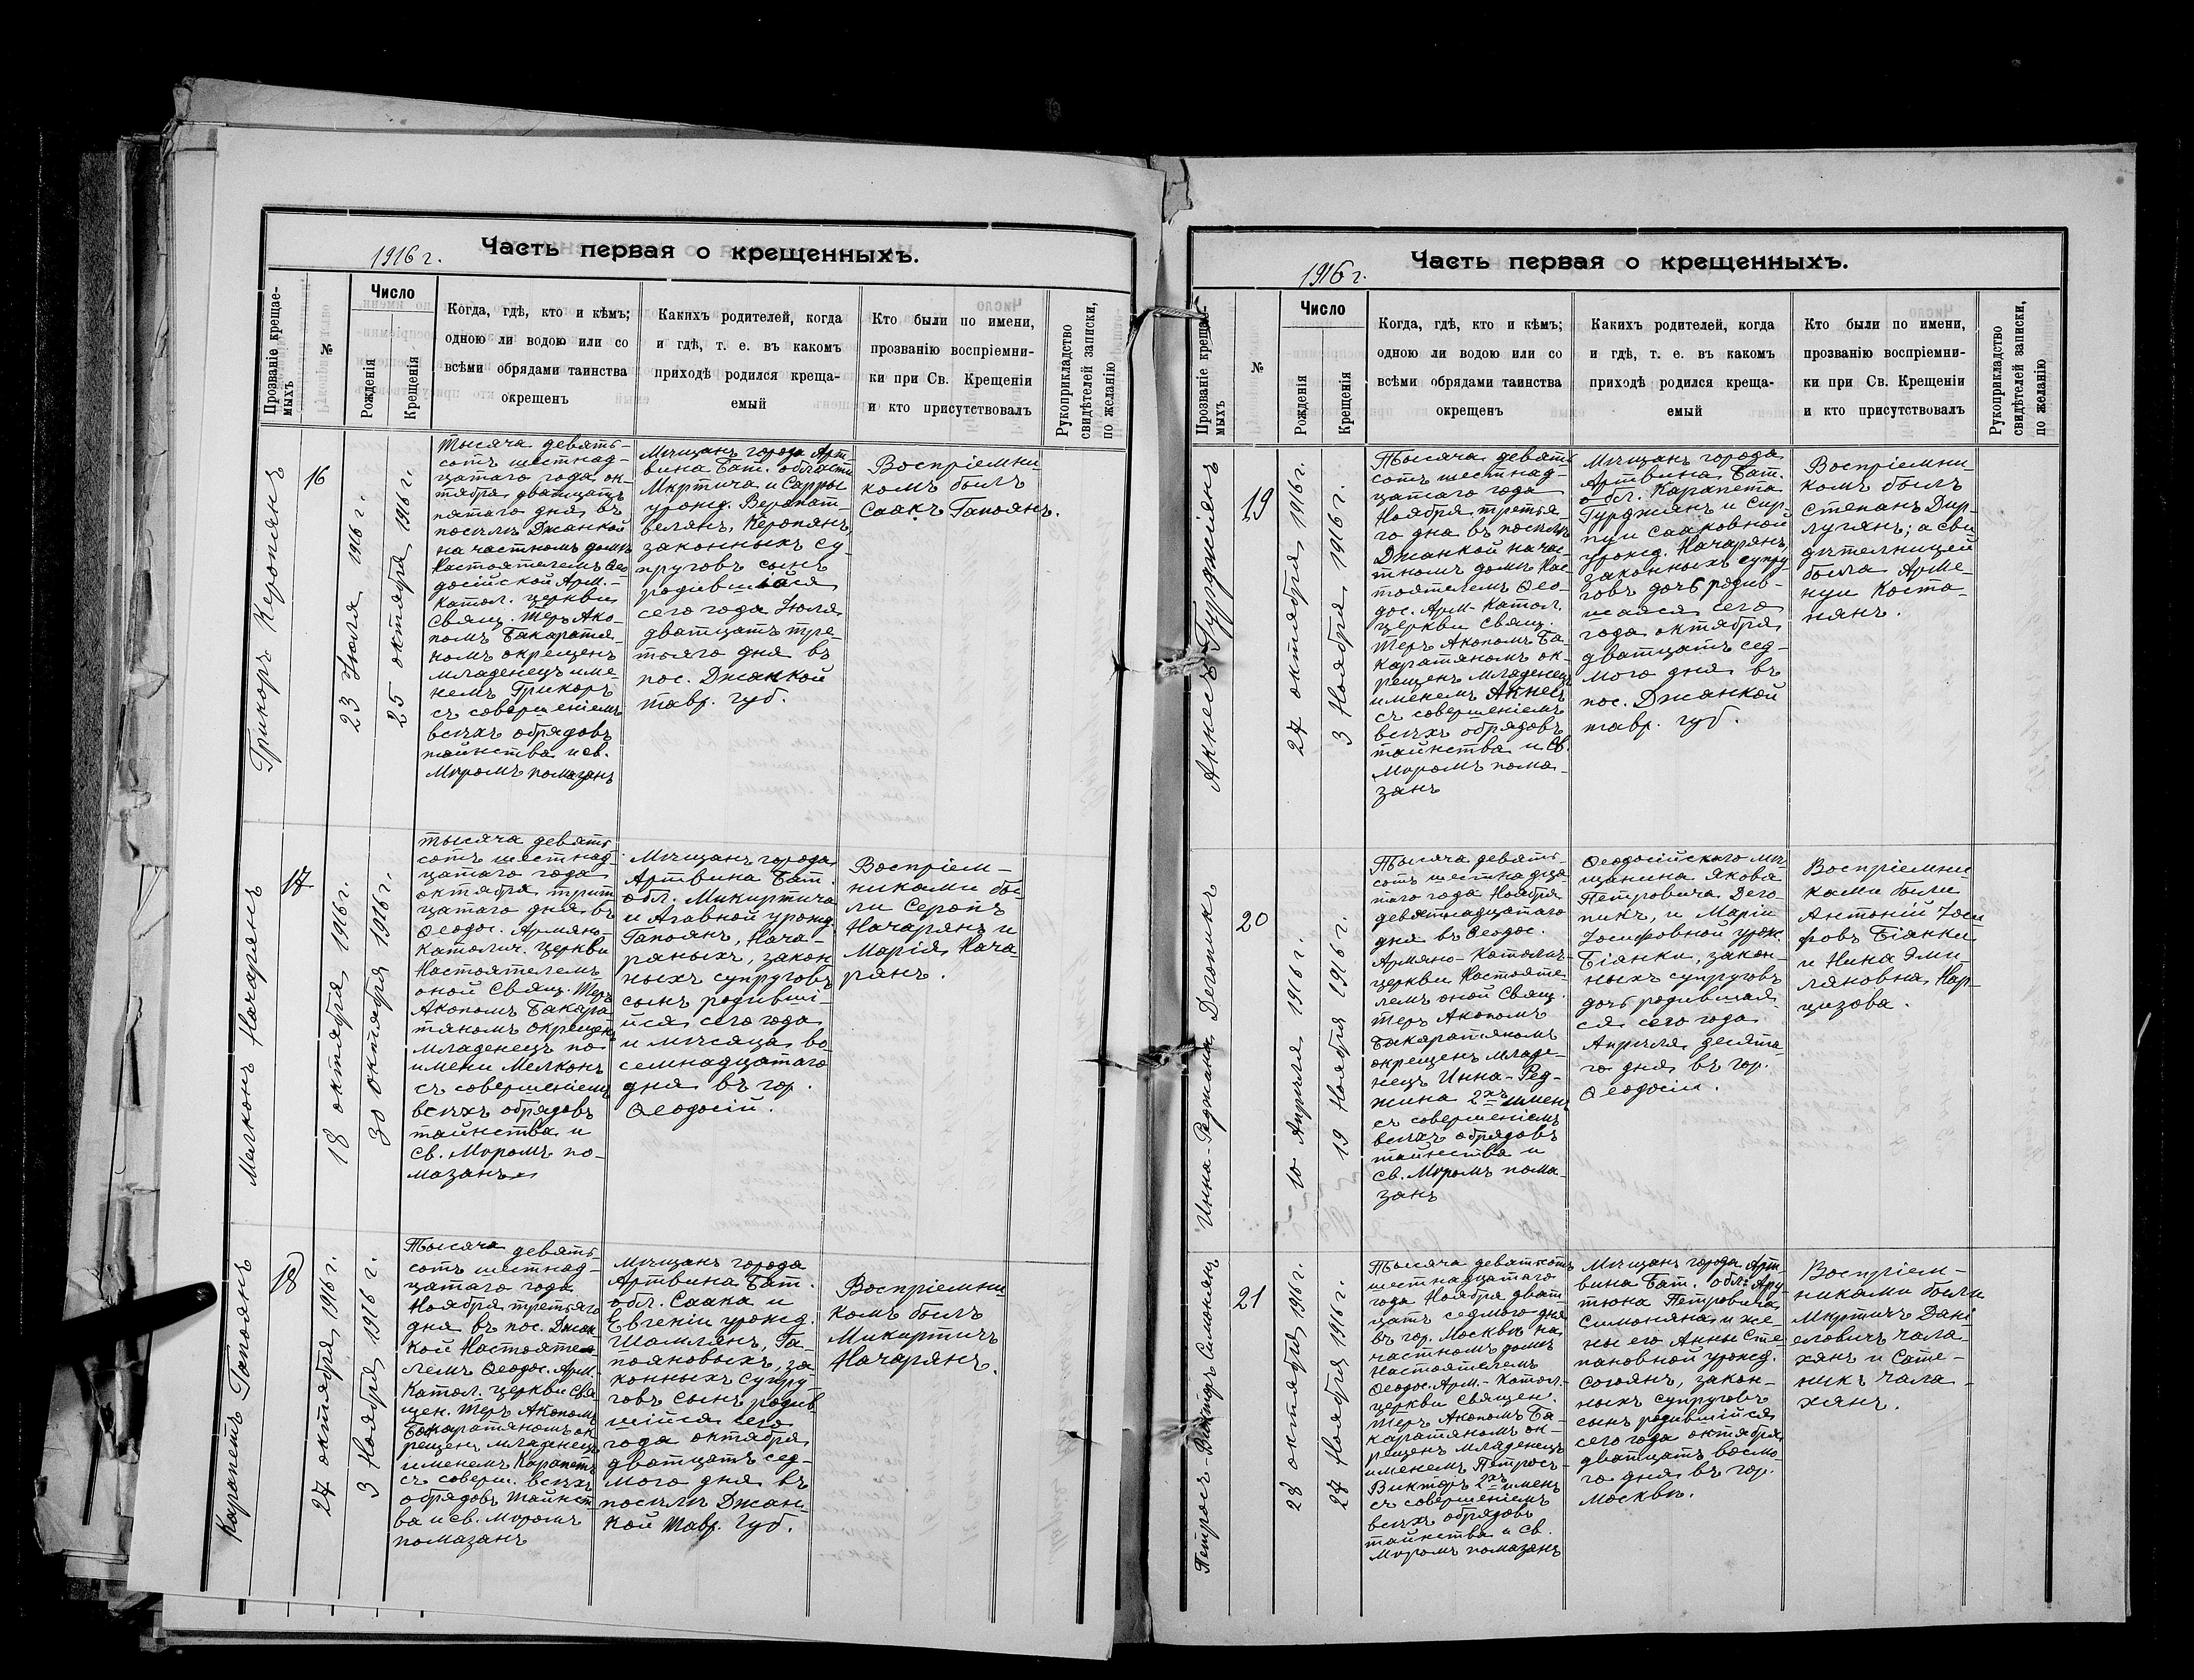 1916 г. Часть первая о крещенныхъ.
Прозваніе крещае-
мыхъ
№
Число
Рожденія
Крещенія
Когда, гдѣ, кто и кѣмъ;
одною ли водою или со
всѣми обрядами таинства
окрещенъ
Какихъ родителей, когда
и гдѣ, т. е. въ какомъ
приходѣ родился креща-
емый
Кто были по имени,
прозванію воспріемни-
ки при Св. Крещеніи
и кто присутствовалъ
Рукоприкладство
свидѣтелей записки,
по желанію
Грикоръ Керопянъ
16
23 Іюля 1916 г.
25 октября 1916 г.
Тысяча девять-
сотъ шестнад-
цатаго года ок-
тября дватцать
пятаго дня въ
поселкѣ Джанкой
на частномъ домѣ
Настоятелемъ Ѳео
досійской Арм.-
Катол. церкви
Свящ. Теръ Ако-
помъ Бакаратя-
номъ окрещенъ
младенецъ име-
немъ Грикоръ
съ совершеніемъ
всѣхъ обрядовъ
таинства и св.
Мѵромъ помазанъ
Мѣщанъ города Арт-
вина Бат. области
Мкртича и Сарры
урожд.
Керопянъ,
законныхъ су-
пруговъ сынъ
родившійся
сего года Іюля
дватцать тре-
тьяго дня въ
пос. Джанкой
тавр. губ.
Воспріемни
комъ былъ
Саакъ Гапоянъ.
Мелконъ Начарянъ
17
18 октября 1916 г.
30 октября 1916 г.
тысяча девять
сотъ шестнад-
цатаго года
октября трит
цатаго дня въ
Ѳеодос. Армяно-
Католич. Церкви
Настоятелемъ
оной Свящ. Теръ
Акопомъ Бакара-
тяномъ окрещенъ
младенецъ по
имени Мелконъ
съ совершеніемъ
всѣхъ обрядовъ
таинства и
Св. Мѵромъ по-
мазанъ
Мѣщанъ города
Артвина Бат.
обл. Микиртича
и Агавной урожд.
Гапоянъ, Нача-
ряныхъ, закон
ныхъ супруговъ
сынъ родивші-
йся сего года
и мѣсяца во
семнадцатаго
дня въ гор.
Ѳеодосіи.
Воспріем-
никами бы-
ли Серопъ
Начарянъ и
Марія Нача-
рянъ.
Карапетъ Гапоянъ
18
27 октября 1916 г.
3 Ноября 1916 г.
Тысяча девять-
сотъ шестнад-
цатаго года
Ноября третьяго
дня въ пос. Джан
кой Настояте
лемъ Ѳеодос. Арм.-
Катол. церкви Свя
щен. Теръ Акопомъ
Бакаратяномъ ок
рещенъ младенецъ
именемъ Карапетъ
съ соверш. всѣхъ
обрядовъ таинст
ва и св. Мѵромъ
помазанъ
Мѣщанъ города
Артвина Бат.
обл. Саака и
Евгеніи урожд.
Шамлянъ, Га-
пояновыхъ, за
конныхъ супру
говъ сынъ родив
шійся сего
года октября
дватцать сед-
мого дня въ
поселкѣ Джан-
кой Тавр. Губ.
Воспріемни
комъ былъ
Микиртичъ
Начарянъ.
1916 г. Часть первая о крещенныхъ.
Прозваніе крещае-
мыхъ
№
Число
Рожденія
Крещенія
Когда, гдѣ, кто и кѣмъ;
одною ли водою или со
всѣми обрядами таинства
окрещенъ
Какихъ родителей, когда
и гдѣ, т. е. въ какомъ
приходѣ родился креща-
емый
Кто были по имени,
прозванію воспріемни-
ки при Св. Крещеніи
и кто присутствовалъ
Рукоприкладство
свидѣтелей записки,
по желанію
Акнесъ Гурджіянъ
19
27 октября 1916 г.
3 Ноября 1916 г.
Тысяча девять
сотъ шестнад-
цатаго года
Ноября третья
го дна въ поселкѣ
Джанкой на час-
тномъ домѣ Нас-
тоятелемъ Ѳео-
дос. Арм- Катол.
церкви Свящ.
Теръ Акопомъ Ба-
каратяномъ ок-
рещенъ младенецъ
именемъ Акнесъ
съ совершеніемъ
всѣхъ обрядовъ
таинства и Св.
Мѵромъ пома-
занъ
Мѣщанъ города
Артвина Бат.
обл. Карапета
Гурджіянъ и Сир-
пуи Сааковной
урожд. Начарянъ,
законныхъ супру-
говъ дочь родив-
шаяся сего
года октября
дватцать сед-
мого дня въ
пос. Джанкой
тавр. губ.
Воспріемни-
комъ былъ
Степанъ Дир-
лугянъ; а сви
дѣтелницей
была Арме-
нуи Коста-
нянъ.
Инна-Реджина Дегопикъ
20
10 Апрѣля 1916 г.
19 Ноября 1916 г.
Тысяча девять-
сотъ шестнадца-
таго года Ноября
девятнадцатаго
дня въ Ѳеодос.
Армяно-Католич-
церкви Настояте-
лемъ оной Свящ.
Теръ Акопомъ
Бакаратяномъ
окрещенъ младе-
нецъ Инна-Ред-
жина 2хъ именъ
съ совершеніемъ
всѣхъ обрядовъ
таинства и
св. Мѵромъ пома-
занъ
Ѳеодосійскаго мѣ-
щанина Якова
Петровича Дего-
пикъ, и Маріи
Іосифовной урож.
Біанки, закон-
ныхъ супруговъ
дочь родившая
ся сего года
Апрѣля десята-
го дня въ гор.
Ѳеодосіи.
Воспріемни
ками были
Антоній Іоси
фовъ Біанки
и Нина Эми-
ляновна Нар-
цизова.
Петросъ-Викторъ Симонянъ
21
28 октября 1916 г.
27 Ноября 1916 г.
Тысяча девятьсотъ
шестнадцатаго
года Ноября дват
цать седмого дня
въ гор. Москвѣ на
частномъ домѣ
Настоятелемъ
Ѳеодос. Арм.- Катол.-
церкви Священ.
Теръ Акопомъ Ба-
каратяномъ ок-
рещенъ младенецъ
именемъ Петросъ-
Викторъ 2хъ именъ
съ совершеніемъ
всѣхъ обрядовъ
таинства и св.
Мѵромъ помазанъ
Мѣщанъ города Арт-
вина Бат. обл. Ару-
тюна Петровича
Симоняна и же-
ны его Анны Сте
пановной урожд.
Согоянъ, закон-
ныхъ супруговъ
сынъ родившійся
сего года октября
дватцать восмо-
го дня въ гор.
Москвѣ.
Воспріем-
никами были
Мкртичъ Дані
еловичъ Чала-
хянъ и Сате-
никъ Чала-
хянъ.